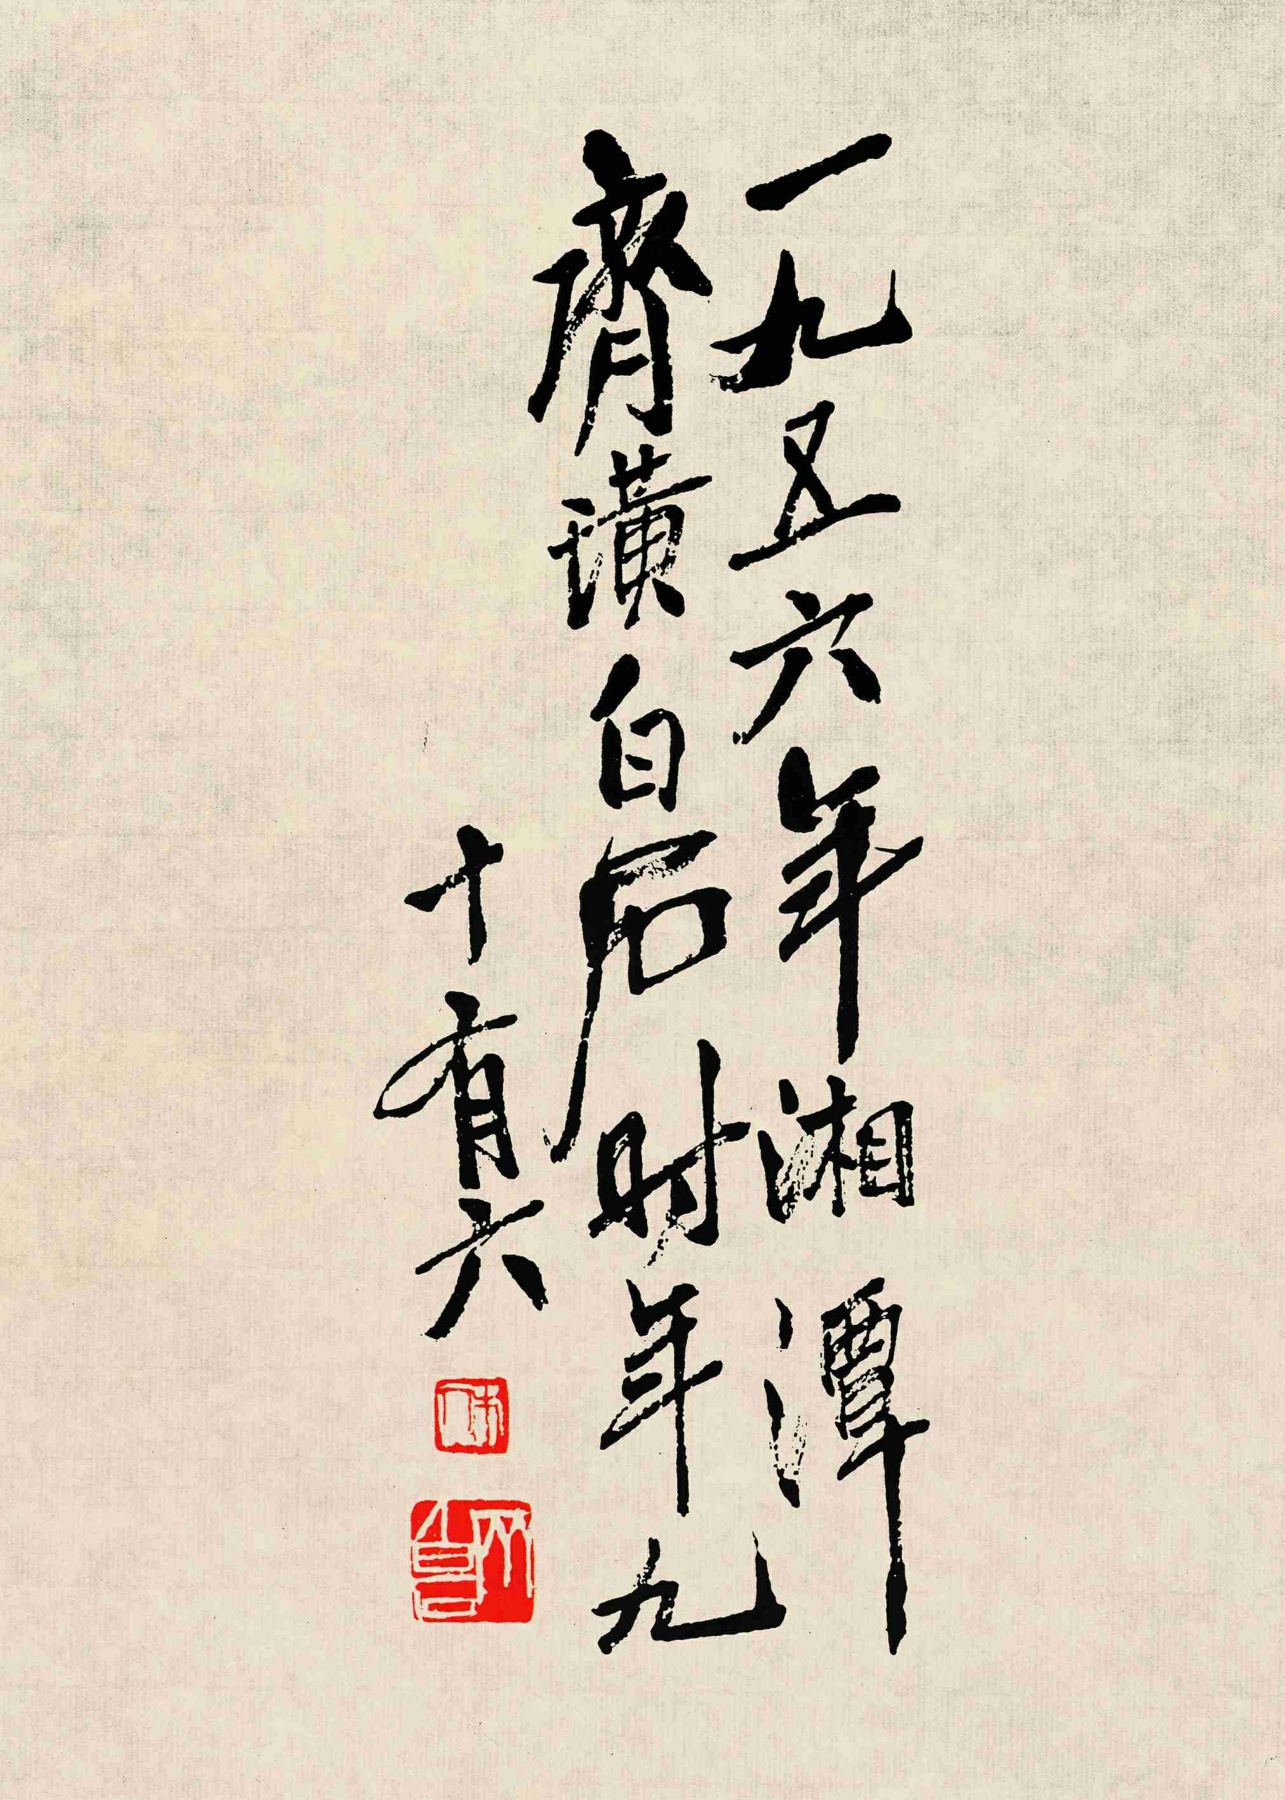 一九五六年湘潭
齊璜白石时年九
十有六